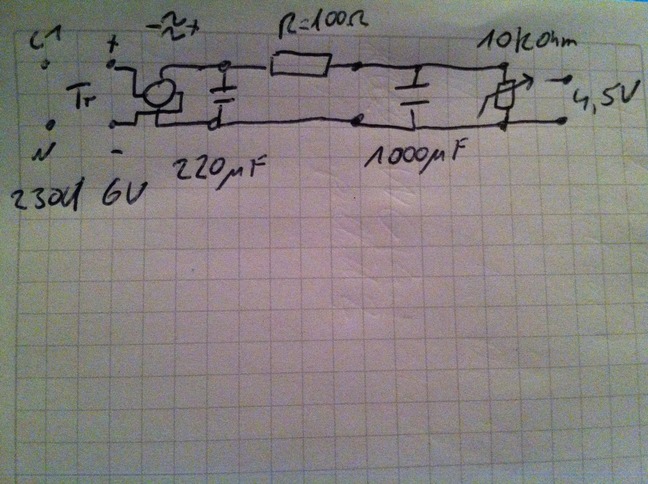 L1 + -~~+ R=100Ω 10kOhm
Tr
4,5V
N -
230V 6V 220µF 1000µF